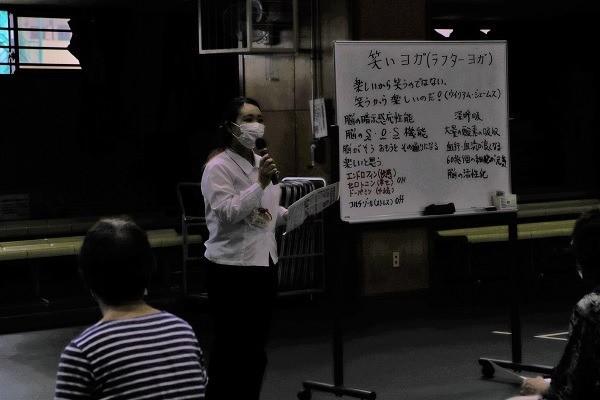 笑いヨガ(ラフターヨガ)
楽しいから笑うのではない、
笑うから楽しいのだ!(ウイリアム・ジェームス)
脳の暗示感応性能
脳のSOS機能
脳がそう おもうと その通りになる
楽しいと思う
エンドロフィン(快感)
セロトニン(幸せ) ON
ドーパミン
コルチゾール(ストレス) OFF
深呼吸
大量の酸素の吸収
血行・血流が良くなる
60兆個の細胞が元気
脳の活性化